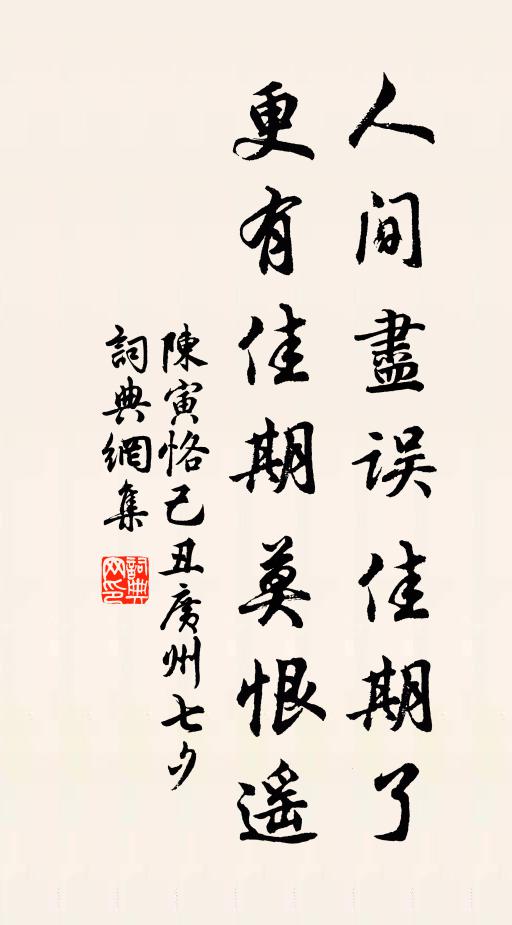 人間盡误佳期了
更有佳期莫恨遥
陳寅恪己丑广州七夕
詞典網集
詞典网印